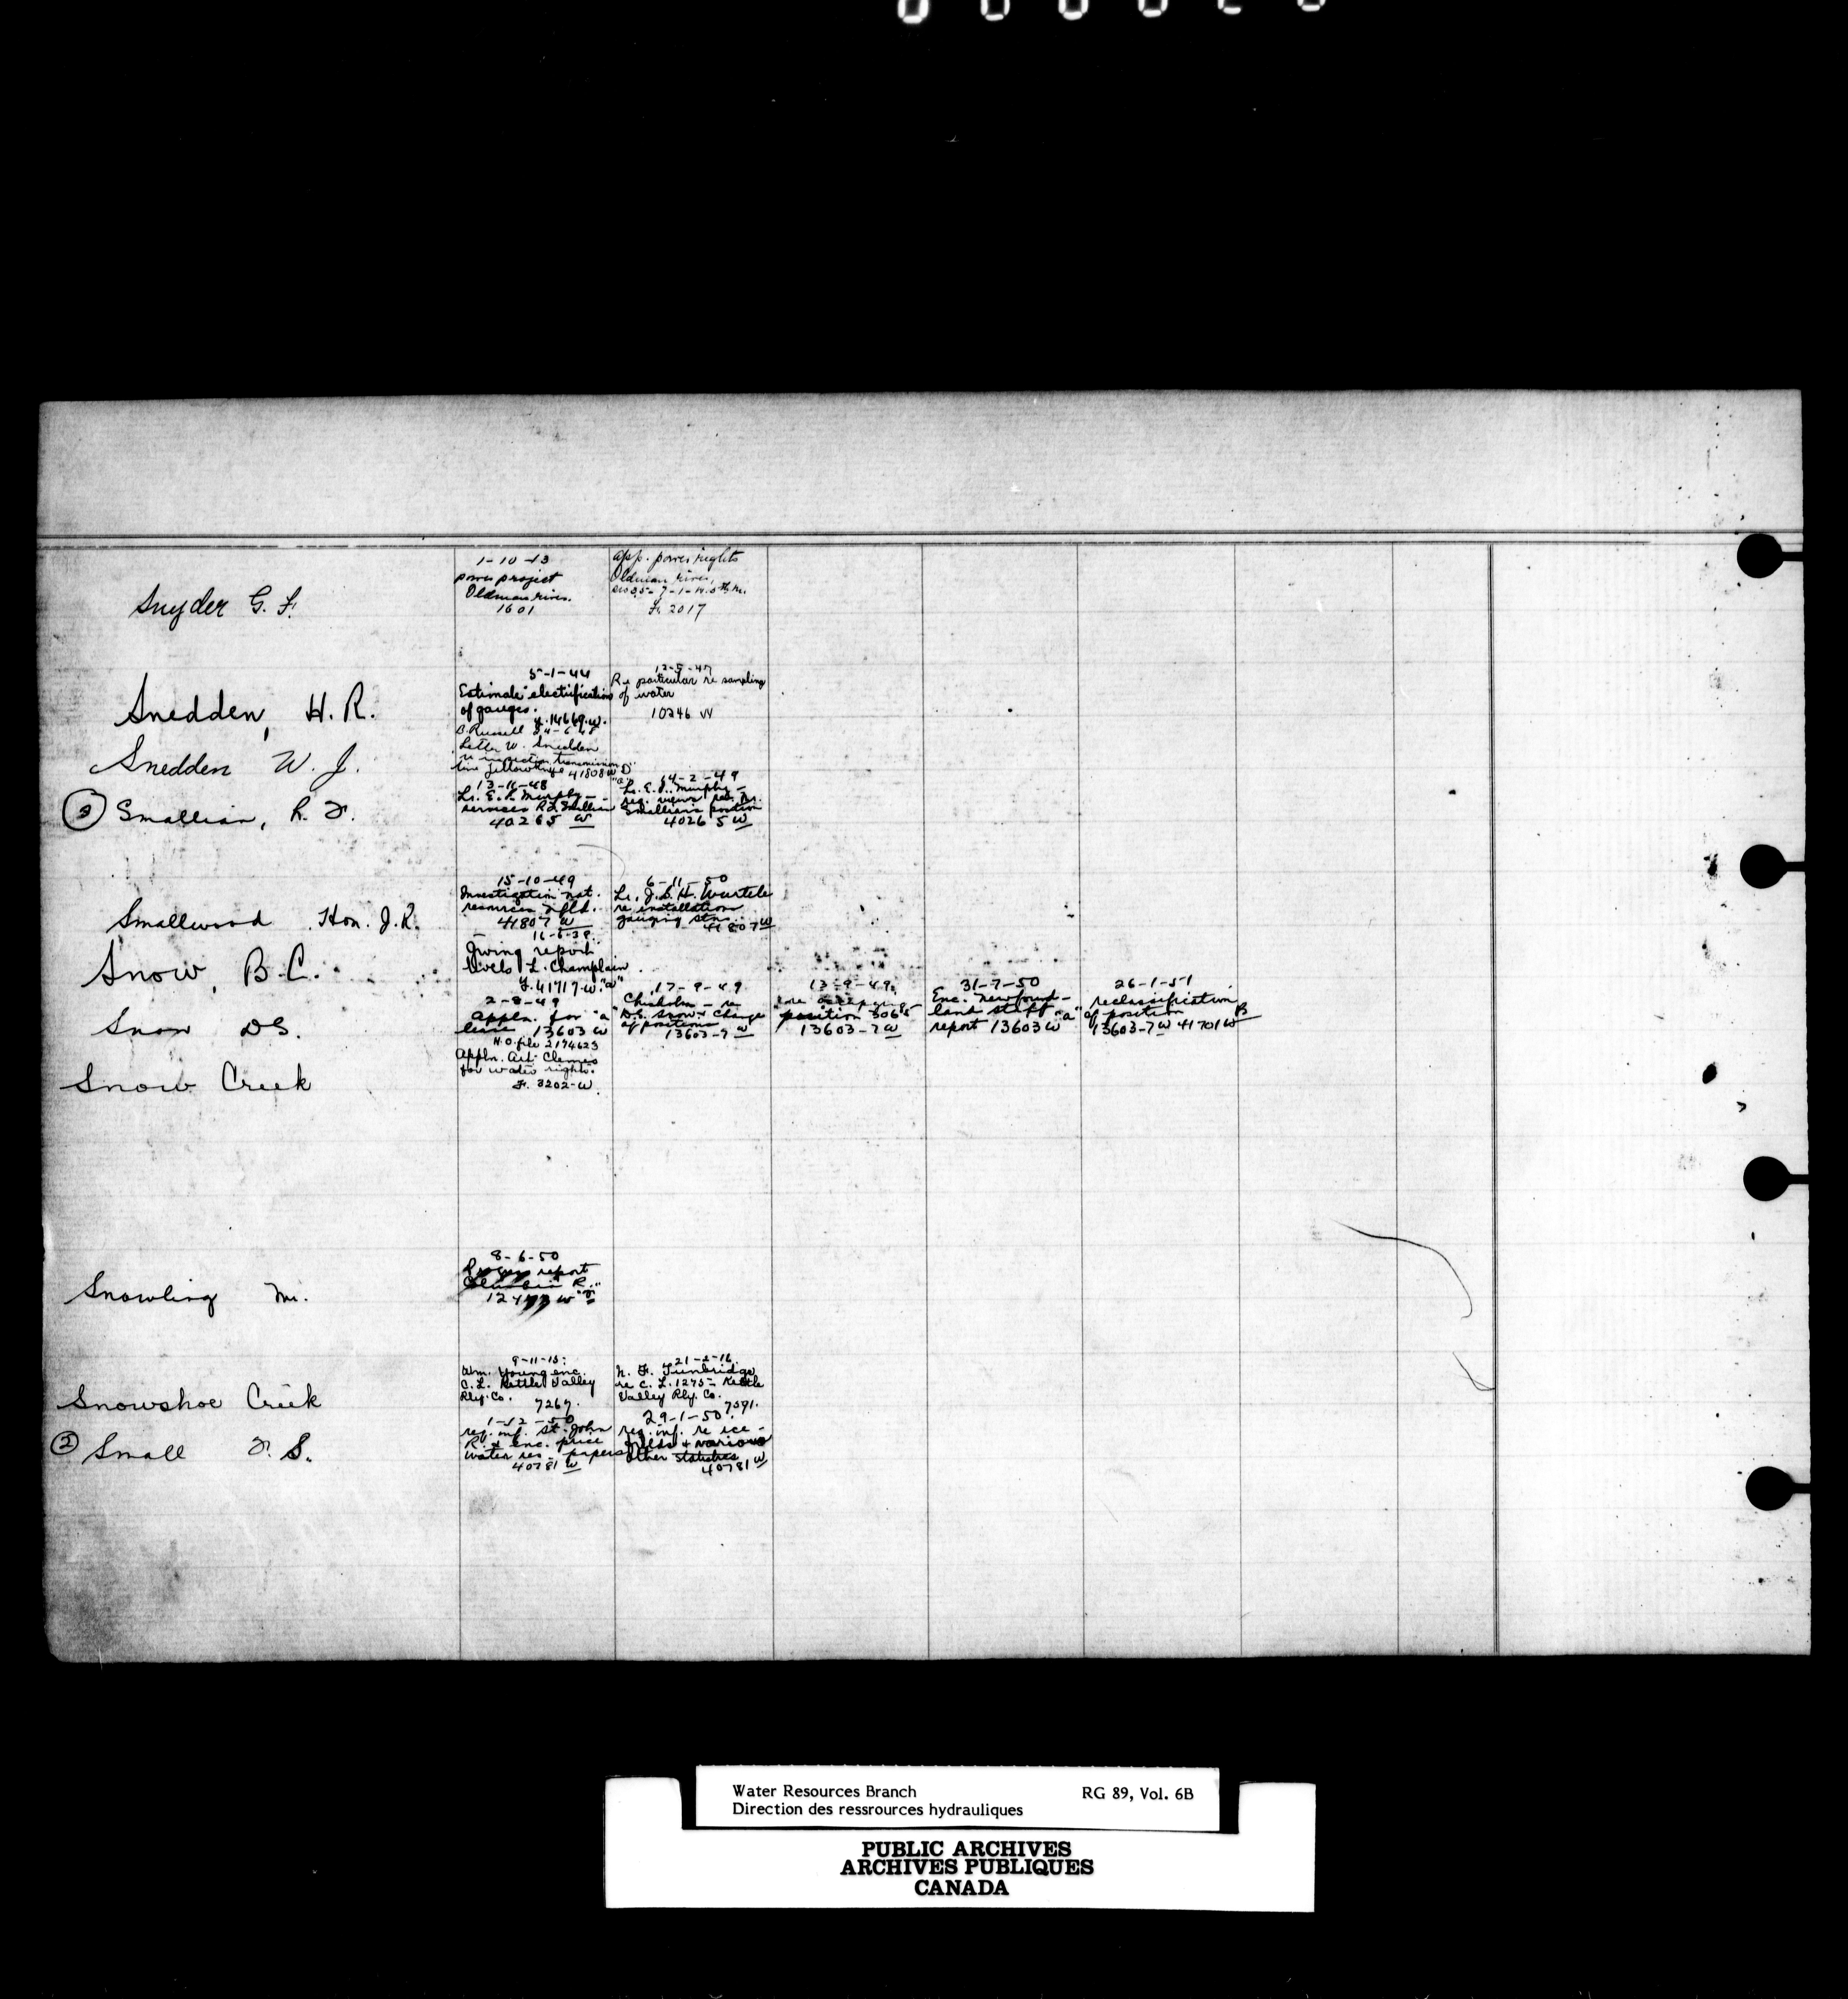 Snyder G. F.
1-10-13
power project
Oldman river.
1601
app. power rights
Oldman river,
F. 2017
Snedden, H. R.
5-1-44
Estimate electrification
of gauges.
F. 14669.W.
12-5-47
Re particular re sampling
of water
10246 W
Snedden W. J.
B. Russell 24-6-48
Letter W. Snedden
re inspection transmission
line Yellowknife 41808 W "D"
③ Smallian, R. F.
13-11-48
Lr. E. P. Murphy -
services R. F. Smallian
40265 W
14-2-49
Lr. E. P. Murphy -
req. views reb. Mr.
Smallian's position
40265 W
Smallwood Hon. J. R.
15-10-49
Investigation nat.
resources Nfld.
41807 W
6-11-50
Lr. J. S. H. Wurtele
re installations
gauging stns.
41807 W
Snow, B. C.
16-6-38
Irving report
levels L. Champlain
F. 41717.W. "a"
Snow DS.
2-8-49
Appln. for "a"
leave 13603 W
17-9-49
Chisholm - re
D.S. Snow & Change
of positions
13603-7 W
13-9-49
position 3065
13603-7 W
31-7-50
Enc. Newfound-
land staff "a"
report 13603 W
26-1-51
reclassification
of position B
13603-7 W 41701 W
Snow Creek
H.O. file 2174623
Appln. Art Clemes
for water rights.
F. 3202-W.
Snowling M.
8-6-50
report
Columbia R.
Snowshoe Creek
9-11-15
Wm. Young enc.
C. L. Kettle Valley
Rly. Co. 7267.
21-2-16
N. F. Tunbridge
re C. L. 1275 - Kettle
Valley Rly. Co.
7591.
② Small F. S.
1-12-50
req. inf. St. John
R. & enc. price
water res. papers
40781 W
29-1-50
req. inf. re ice -
fields & various
other statistics
40781 W
Water Resources Branch RG 89, Vol. 6B
Direction des ressrources hydrauliques
PUBLIC ARCHIVES
ARCHIVES PUBLIQUES
CANADA